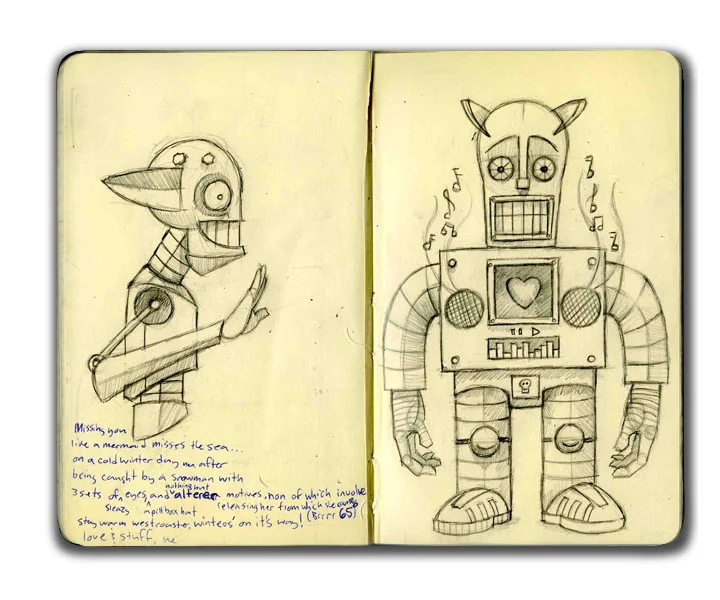 Missing you
like a mermaid misses the sea...
on a cold winter day after
being caught by a snowman with
nothing but
3 sets of eyes, and alterer motives, non of which involve
sleazy pillbox hat releasing her from which she came
stay warm westcoaster, winters' on it's way! (Brrrr 65)
love & stuff, me